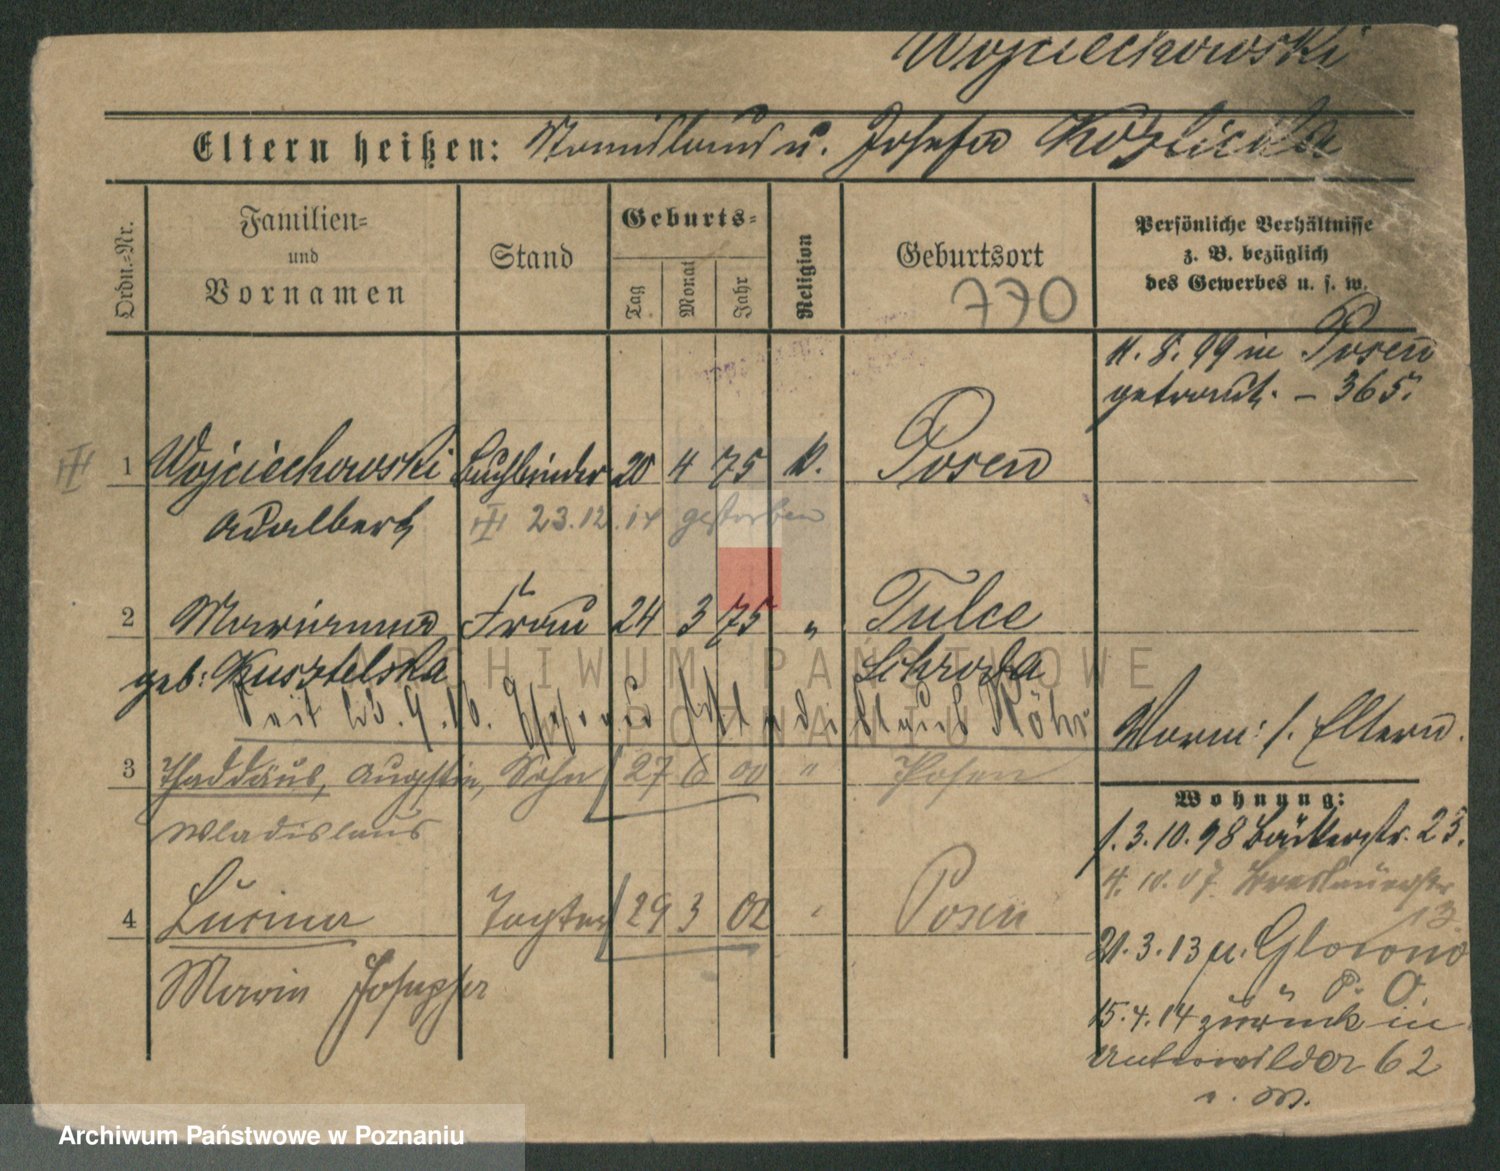 Wojciechowski
Eltern heißen: Stanislaus u. Josefa Kozlicka
Ordn.-Nr.
Familien-
und
Vornamen
Stand
Geburts-
Tag
Monat
Jahr
Religion
Geburtsort
770
Persönliche Verhältnisse
z. B. bezüglich
des Gewerbes u. s. w.
8. 99 in Posen
getraut. – 365.
1 Wojciechowski Buchbinder 20 4 75 k. Posen
Adalbert
23.12.14 gestorben
2 Marianna Frau 24 3 75 " Tulce
geb: Kusztelska Schroda
Seit 23. 9. 16.
3 Thaddäus, Augustin, Sohn 27 6 00 " Posen
Wladislaus
4 Lucina Tochter 29 3 02 " Posen
Maria Josepha
Norm: s. Eltern.
Wohnung:
3.10.98 Bäckerstr. 23.
4. 10. 07. Breslauerstr
13
21. 3. 13 n. Glowno
P. O.
15. 4. 14 zurück in
Unterwilda 62
ARCHIWUM PAŃSTWOWE
W POZNANIU
Archiwum Państwowe w Poznaniu